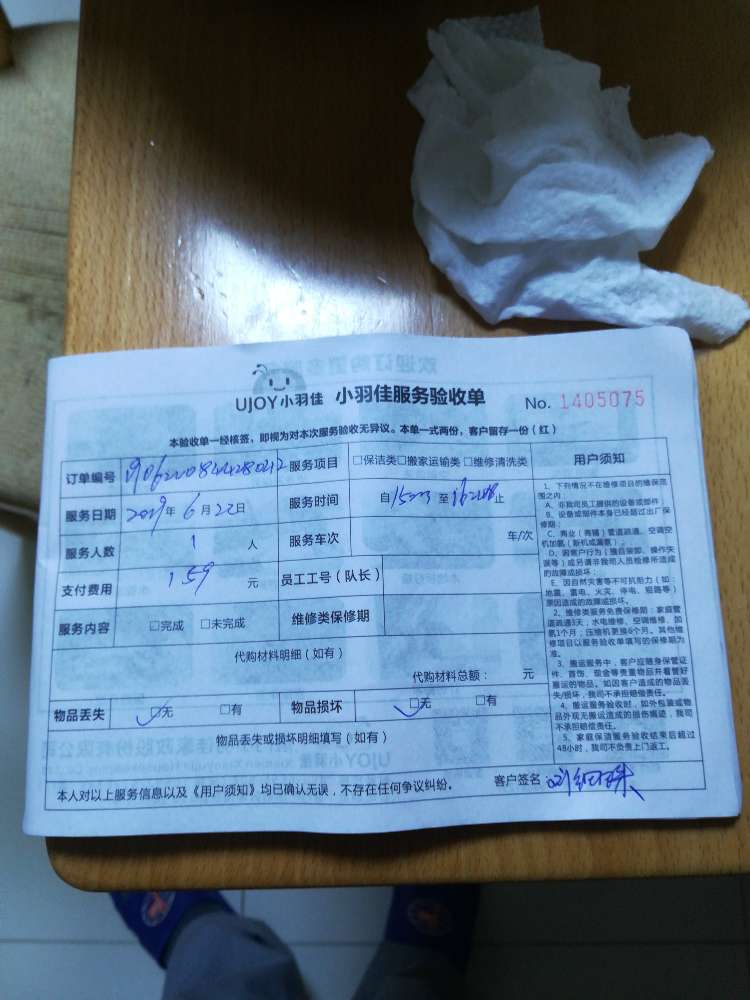 UJOY小羽佳 小羽佳服务验收单 No. 1405075
本验收单一经核签，即视为对本次服务验收无异议。本单一式两份，客户留存一份（红）
订单编号 服务项目 □保洁类□搬家运输类□维修清洗类
服务日期 2019年6月22日 服务时间 自 至 止
服务人数 1 人 服务车次 车/次
支付费用 159 元 员工工号（队长）
服务内容 □完成 □未完成 维修类保修期
代购材料明细（如有）
代购材料总额： 元
物品丢失 □无 □有 物品损坏 □无 □有
物品丢失或损坏明细填写（如有）
本人对以上服务信息以及《用户须知》均已确认无误，不存在任何争议纠纷。 客户签名：
用户须知
1、下列情况不在维修项目的维保范
围之内：
A、非我司员工提供的设备或部件；
B、设备或部件本身已经超过出厂保
修期；
C、商业（商铺）管道疏通、空调空
机加氟（新机或漏氟）；
D、因客户行为（擅自装卸、操作失
误等）或另请非我司人员检修所造成
的故障或损坏；
E、因自然灾害等不可抗拒力（如：
地震、雷电、火灾、停电、短路等）
原因造成的故障或损坏。
2、维修类服务免费保修期：家庭管
道疏通3天；水电维修、空调维修、加
氟1个月；压缩机更换6个月。其他维
修项目以服务验收单填写的保修期为
准。
3、搬运服务中，客户应随身保管证
件、首饰、现金等贵重物品并看管好
搬运的物品。如因客户造成的物品丢
失/损坏，我司不承担赔偿责任。
4、搬运服务验收时，如外包装或物
品外观无搬运造成的损伤痕迹，我司
不承担赔偿责任。
5、家庭保洁服务验收结束后超过
48小时，我司不负责上门返工。